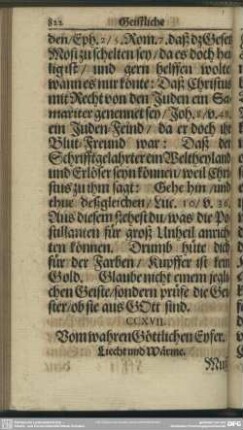 822 Geistliche
den/Eph. 2/5. Rom. 7. daß dz Gesetz
Mosi zu schelten sey/ da es doch hei
lig ist/ und gern helffen wolte
wann es nur könte: Daß Christus
mit Recht von den Juden ein Sa
mariter genennet sey/ Joh. 8/v.48.
ein Juden Feind/ da er doch ihr
Blut Freund war: Daß der
Schrifftgelahrter ein Weltheyland
und Erlöser seyn können/ weil Chri
stus zu ihm sagt: Gehe hin/ und
thue desgleichen/ Luc. 10/v.
Aus diesem siehest du/ was die Po
stulanten für groß Unheil anrich
ten können. Drumb hüte dich
für der Farben/ Kupffer ist kein
Gold. Glaube nicht einem jegli
chen Geiste/ sondern prüfe die Gei
ster/ ob sie aus GOtt sind.
CCXVII.
Vom wahren Göttlichen Eyfer.
Liecht und Wärme.